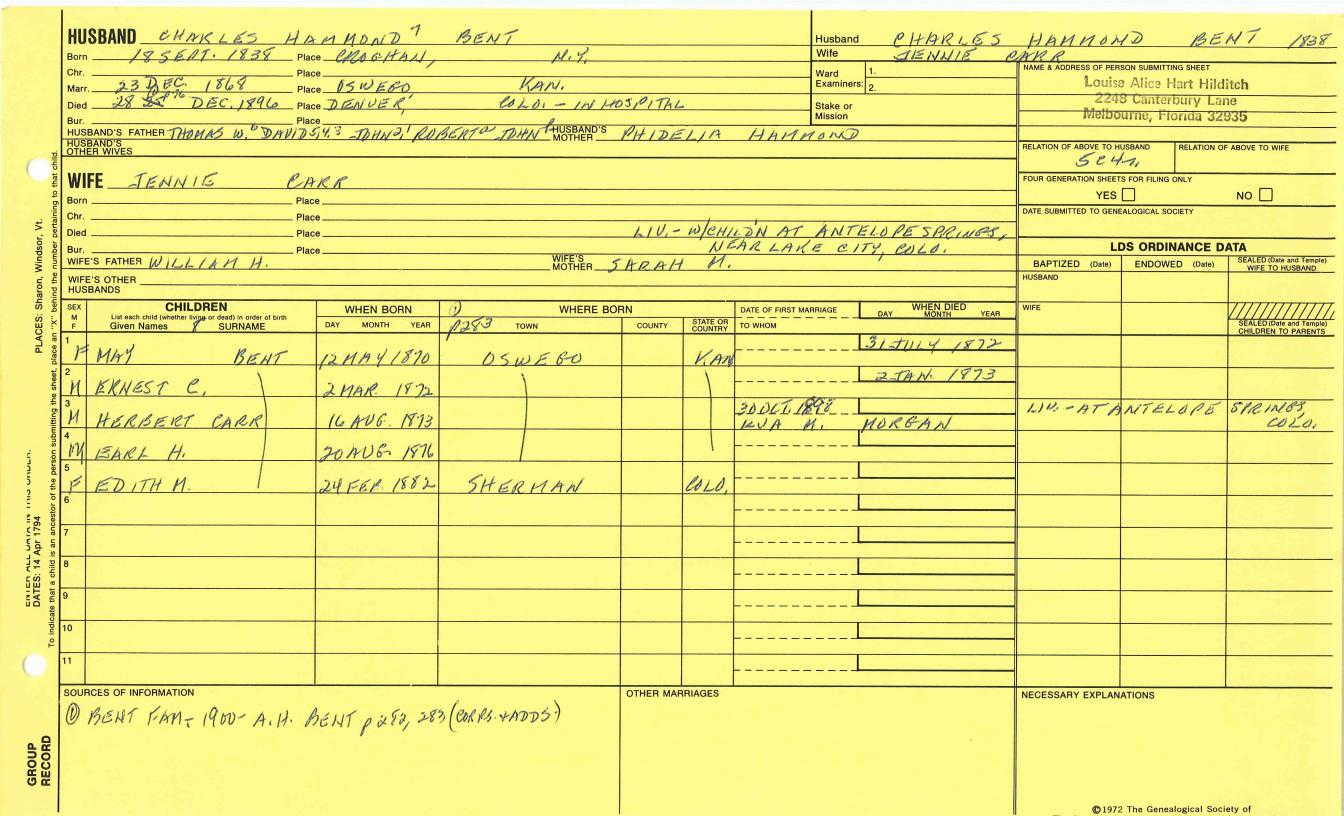 HUSBAND CHARLES HAMMOND 7 BENT
Born 18 SEPT. 1838 Place CROGHAN, N.Y.
Chr. Place
Marr. 23 DEC. 1868 Place OSWEGO, KAN.
Died 28 DEC. 1896 Place DENVER, COLO. - IN HOSPITAL
Bur. Place
HUSBAND'S FATHER THOMAS W. DAVID JOHN ROBERT JOHN HUSBAND'S MOTHER PHIDELIA HAMMOND
HUSBAND'S OTHER WIVES
Husband CHARLES HAMMOND BENT 1838
Wife JENNIE CARR
Ward Examiners: 1.
2.
Stake or Mission
NAME & ADDRESS OF PERSON SUBMITTING SHEET
Louise Alice Hart Hilditch
2248 Canterbury Lane
Melbourne, Florida 32935
RELATION OF ABOVE TO HUSBAND RELATION OF ABOVE TO WIFE
5C4r.
FOUR GENERATION SHEETS FOR FILING ONLY
YES NO
DATE SUBMITTED TO GENEALOGICAL SOCIETY
WIFE JENNIE CARR
Born Place
Chr. Place
Died Place LIV. - W/CHILD'N AT ANTELOPE SPRINGS,
Bur. Place NEAR LAKE CITY, COLO.
WIFE'S FATHER WILLIAM H. WIFE'S MOTHER SARAH M.
WIFE'S OTHER HUSBANDS
LDS ORDINANCE DATA
BAPTIZED (Date) ENDOWED (Date) SEALED (Date and Temple) WIFE TO HUSBAND
HUSBAND
WIFE
SEALED (Date and Temple) CHILDREN TO PARENTS
SEX M F
CHILDREN
List each child (whether living or dead) in order of birth
Given Names 8 SURNAME
WHEN BORN
DAY MONTH YEAR
① p283
WHERE BORN
TOWN COUNTY STATE OR COUNTRY
DATE OF FIRST MARRIAGE
TO WHOM
WHEN DIED
DAY MONTH YEAR
1 F MAY BENT 12 MAY 1870 OSWEGO KAN 31 JULY 1872
2 M ERNEST C. 2 MAR. 1872 2 JAN. 1873
3 M HERBERT CARR 16 AUG. 1873 30 OCT. 1898 MORGAN LIV. - AT ANTELOPE SPRINGS, COLO.
4 M EARL H. 20 AUG. 1876
5 F EDITH M. 24 FEB. 1882 SHERMAN COLO.
6
7
8
9
10
11
SOURCES OF INFORMATION
① BENT FAM - 1900 - A.H. BENT p 282, 283 (CORRS. + ADDS)
OTHER MARRIAGES
NECESSARY EXPLANATIONS
©1972 The Genealogical Society of
PLACES: Sharon, Windsor, Vt.
DATES: 14 Apr 1794
ENTER ALL DATA IN THIS ORDER:
To indicate that a child is an ancestor of the person submitting the sheet, place an "X" behind the number pertaining to that child.
GROUP RECORD